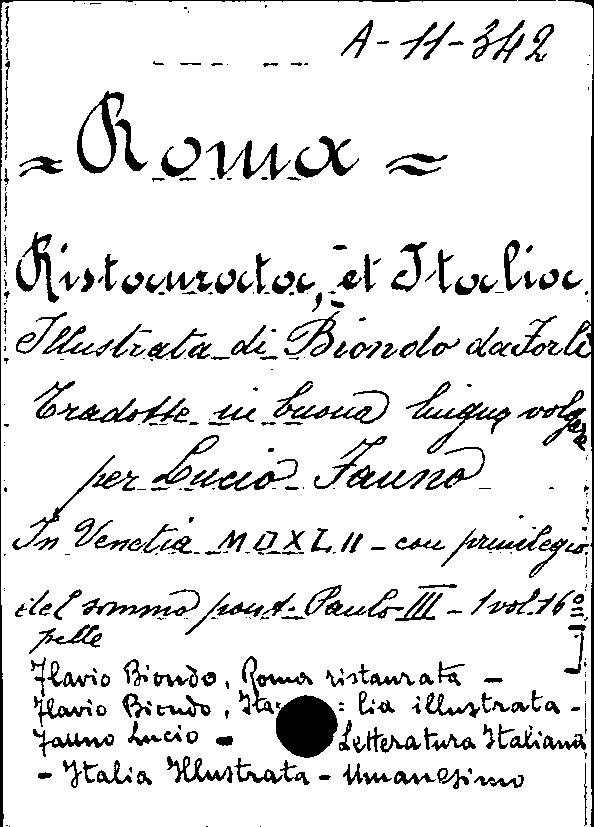 A-11-342
= Roma =
Ristaurata, et Italia
Illustrata di Biondo da Forlì
Tradotte in buona lingua volgare
per Lucio Fauno
In Venetia MDXLII - con privilegio
del sommo pont. Paulo III - 1 vol. 16º
pelle
Flavio Biondo, Roma ristaurata -
Flavio Biondo, Ita: lia illustrata -
Fauno Lucio - Letteratura Italiana
- Italia Illustrata - Umanesimo